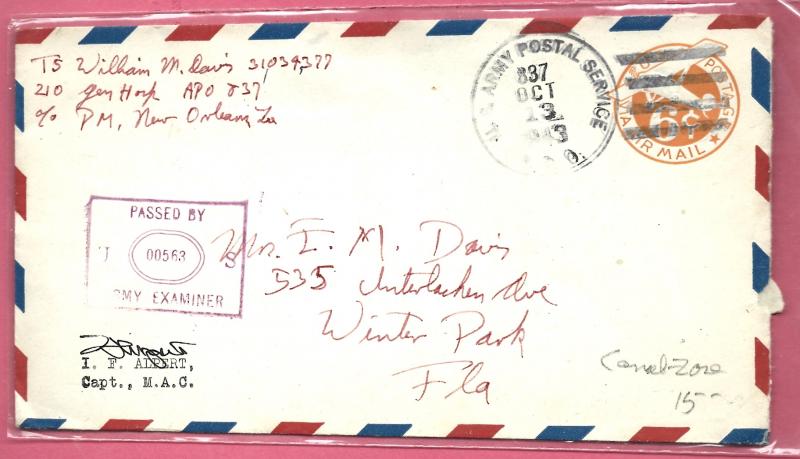 T5 William M. Davis 31034377
210 Gen Hosp APO 837
c/o PM, New Orleans, La
U. S. ARMY POSTAL SERVICE
837
OCT
13
1943
A.P.O.
U.S. POSTAGE
6¢
VIA AIR MAIL
PASSED BY
U 00563 S
ARMY EXAMINER
Mrs. I. M. Davis
535 Interlachen Ave
Winter Park
Fla
I. F. ALPERT,
Capt., M.A.C.
Canal Zone
15--